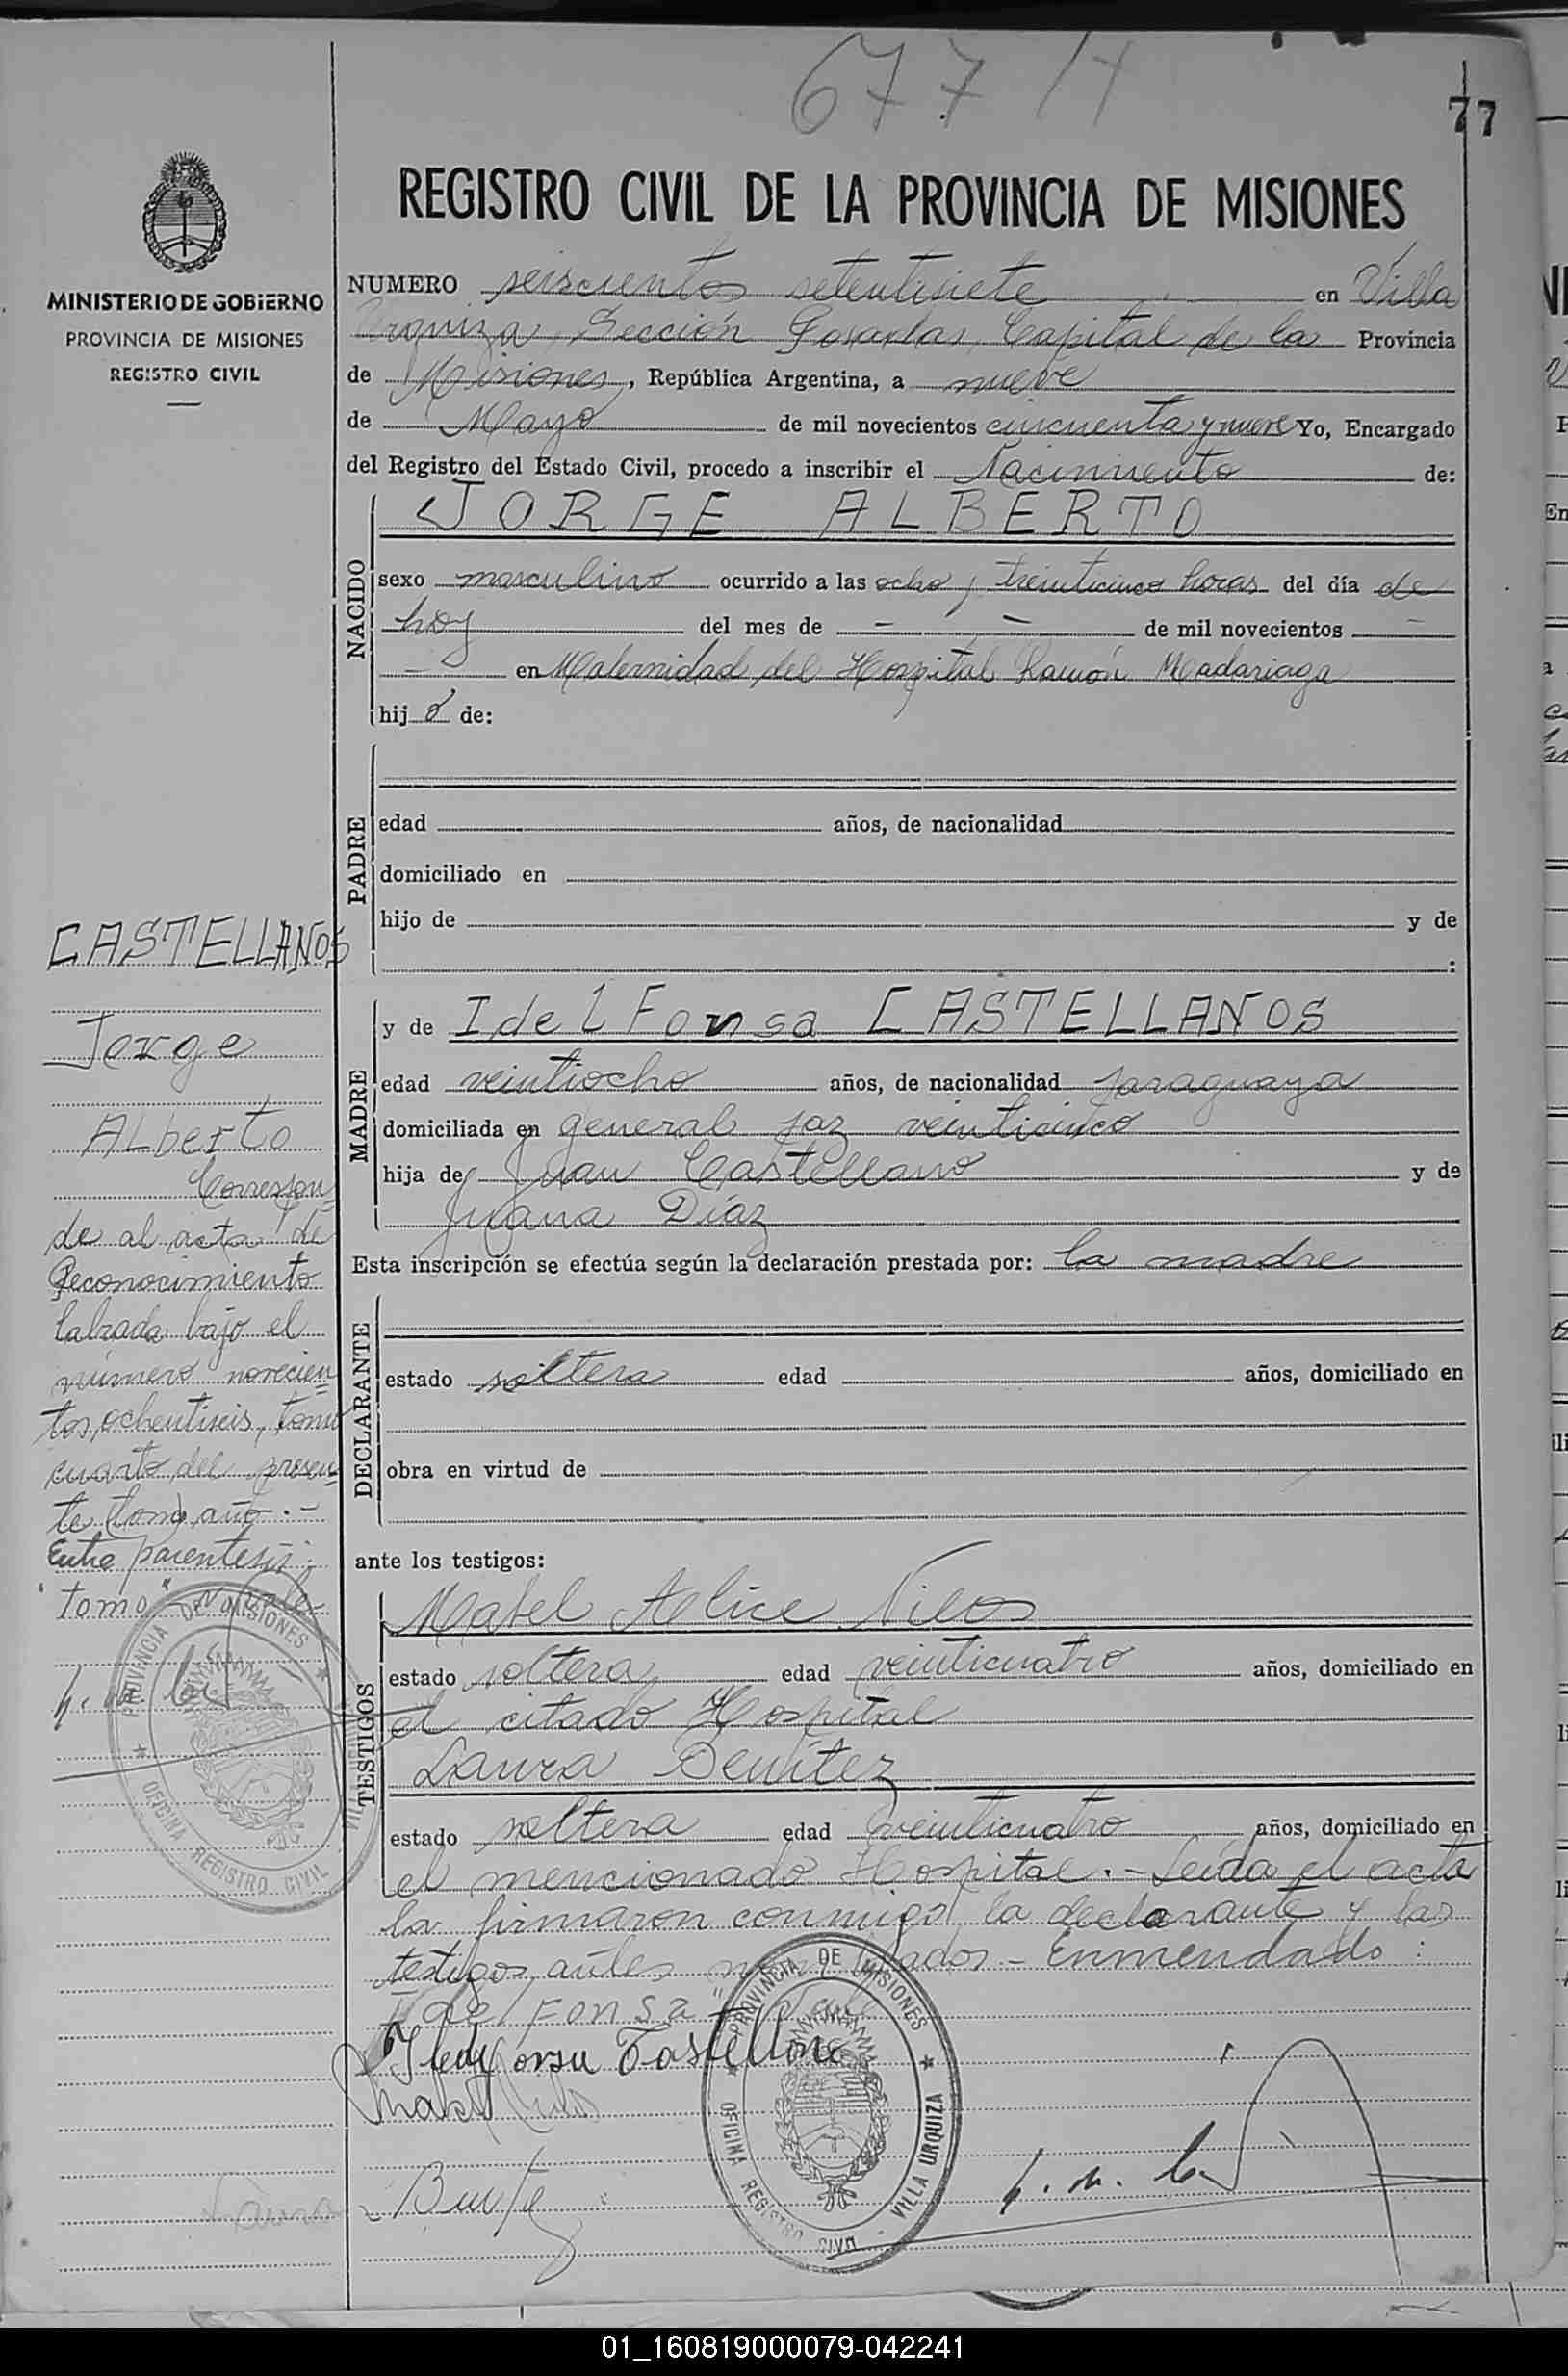 677 / 4
77
MINISTERIO DE GOBIERNO
PROVINCIA DE MISIONES
REGISTRO CIVIL
REGISTRO CIVIL DE LA PROVINCIA DE MISIONES
NUMERO seiscientos setentisiete en Villa
Urquiza, Sección Posadas, Capital de la Provincia
de Misiones, República Argentina, a nueve
de Mayo de mil novecientos cincuenta y nueve Yo, Encargado
del Registro del Estado Civil, procedo a inscribir el Nacimiento de:
NACIDO
JORGE ALBERTO
sexo masculino ocurrido a las ocho y treinticinco horas del día de
hoy del mes de - - de mil novecientos -
- en Maternidad del Hospital Ramón Madariaga
hijo de:
PADRE
edad años, de nacionalidad
domiciliado en
hijo de y de
:
MADRE
y de IdelFonsa CASTELLANOS
edad veintiocho años, de nacionalidad paraguaya
domiciliada en general paz veinticinco
hija de Juan Castellano y de
Juana Díaz
Esta inscripción se efectúa según la declaración prestada por: la madre
DECLARANTE
estado soltera edad años, domiciliado en
obra en virtud de
ante los testigos:
TESTIGOS
Mabel Alice
estado soltera edad veinticuatro años, domiciliado en
el citado Hospital
Laura Benítez
estado soltera edad veinticuatro años, domiciliado en
el mencionado Hospital.- Leída el acta
la firmaron conmigo, la declarante y las
testigos antes - Enmendado:
"IdelFonsa"
CASTELLANOS
Jorge
Alberto
Correspon
de al acta de
Reconocimiento
labrada bajo el
número novecien
tos ochentiseis, tomo
cuarto del presen
te (tomo) año.-
Entre parentesis:
"tomo"
PROVINCIA DE MISIONES
OFICINA REGISTRO CIVIL
PROVINCIA DE MISIONES
OFICINA REGISTRO CIVIL - VILLA URQUIZA
Laura
01_160819000079-042241